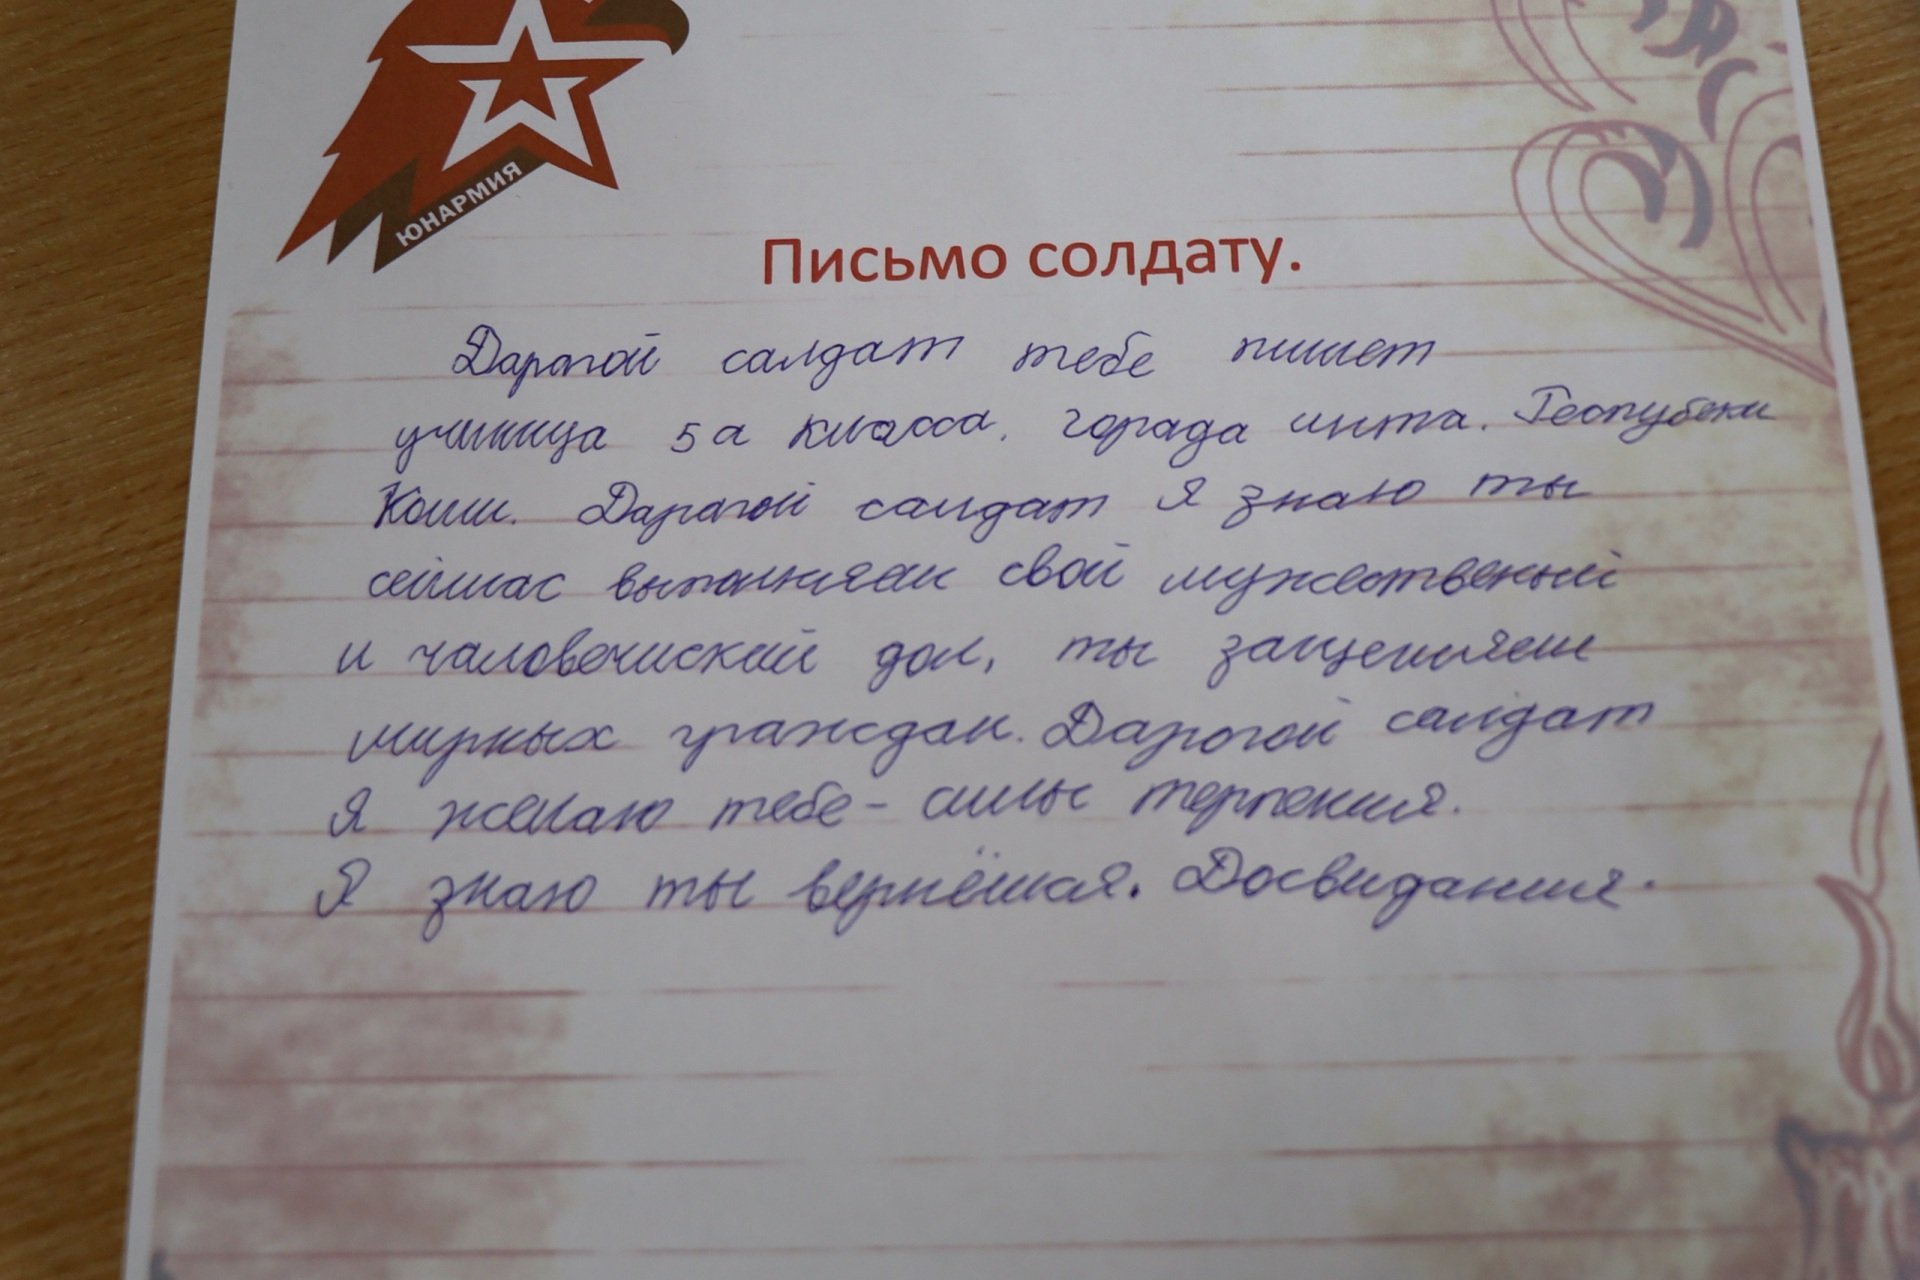 ЮНАРМИЯ
Письмо солдату.
Дарагой салдат тебе пишет
учиница 5а класса, горада инта. Респубеки
Коми. Дарагой салдат я знаю ты
сейчас выполняеш свой мужественый
и чаловечиский дол, ты защещяеш
мирных граждан. Дарогой салдат
Я желаю тебе - силы терпения.
Я знаю ты вернёшся. Досвидания.